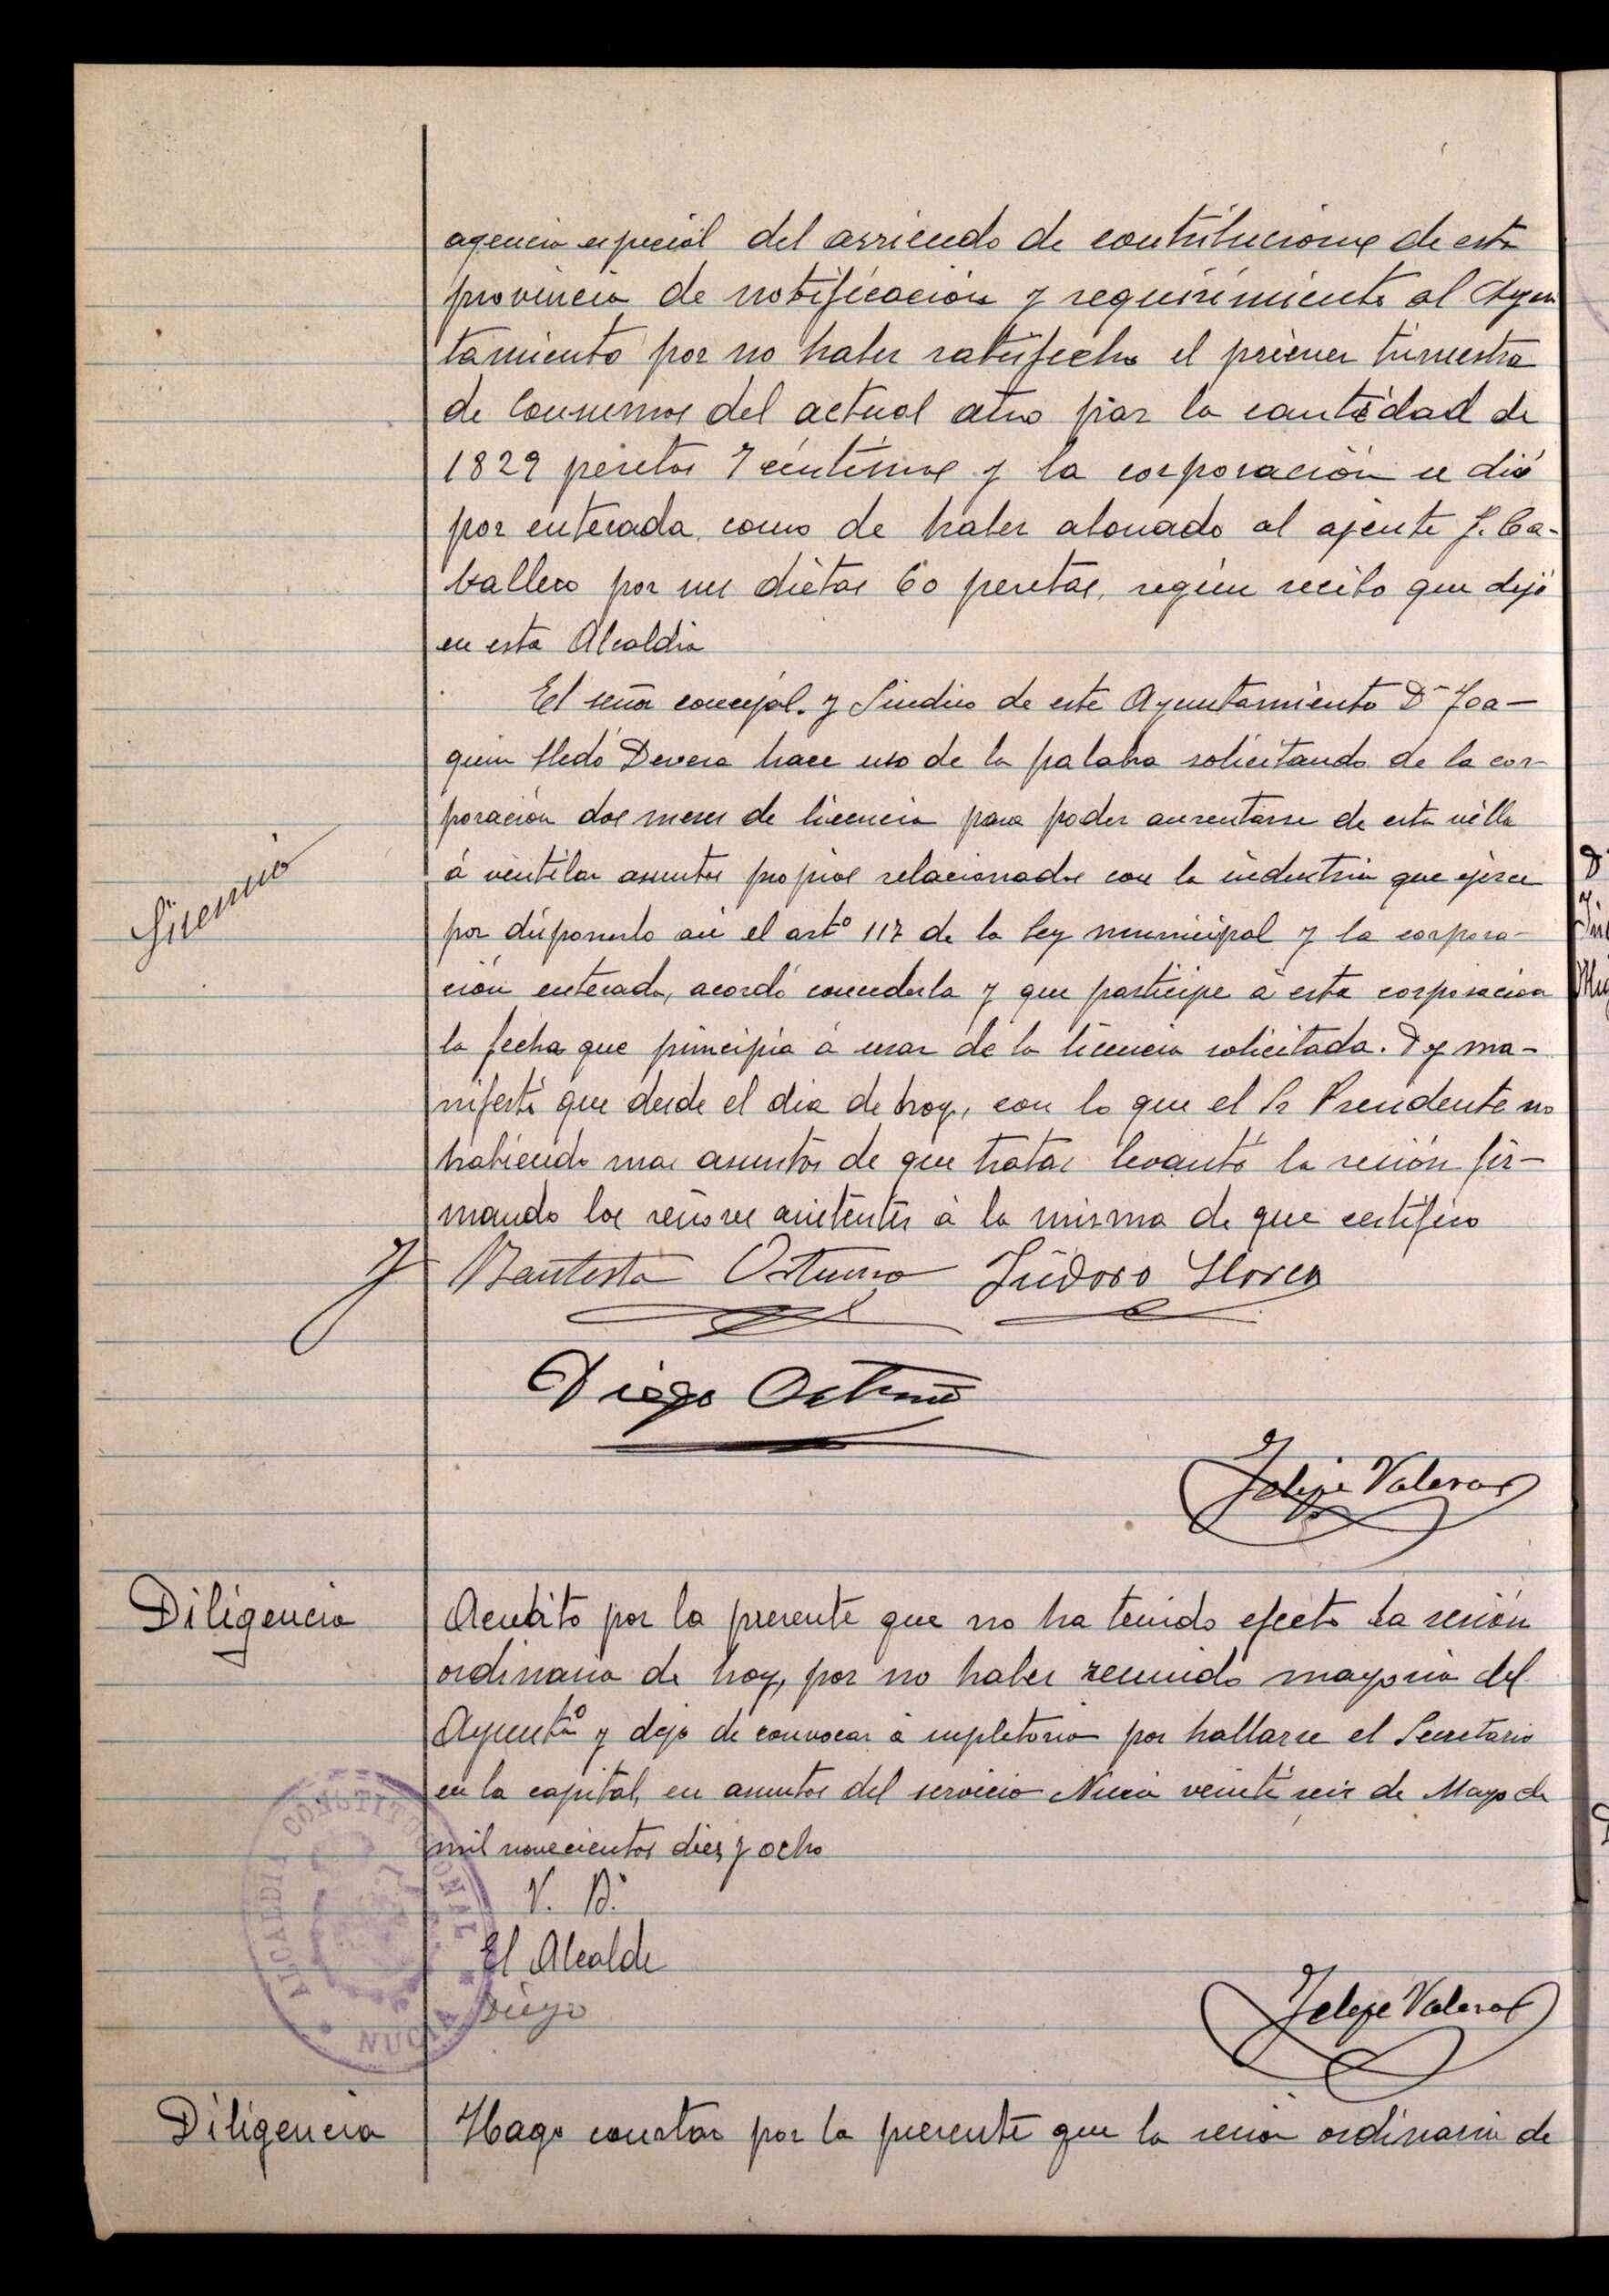 agencia especial del arriendo de contribuciones de esta
provincia de notificación y requirimiento al Ayun
tamiento por no haber satisfecho el primer trimestre
de Consumos del actual año por la cantidad de
1829 pesetas 7 céntimos y la corporación se dió
por enterada, como de haber abonado al ajente J. Ca-
ballero por sus dietas 60 pesetas, según recibo que dejó
en esta Alcaldia
El señor concejal y Sindico de este Ayuntamiento Dn Joa-
quin Lledó Devesa hace uso de la palabra solicitando de la cor-
poración dos meses de licencia para poder ausentarse de esta villa
Licencia
á ventilar asuntos propios relacionados con la industria que ejerce
por disponerlo asi el artº 117 de la Ley municipal y la corpora-
ción enterada, acordó concederla y que participe á esta corporación
la fecha que principia á usar de la licencia solicitada. Dy ma-
nifestó que desde el dia de hoy, con lo que el Sr Presidente no
habiendo mas asuntos de que tratar levantó la sesión fir-
mando los señores asistentes á la misma de que certifico
J Bautista Ortuño Isidoro Llorca
Diego Ortuño
Felipe Valera
Diligencia
Acredito por la presente que no ha tenido efecto la sesión
ordinaria de hoy, por no haber reunido mayoria del
Ayuntº y dejo de convocar á supletoria por hallarse el Secretario
en la capital, en asuntos del servicio Nucia veinte seis de Mayo de
mil novecientos diez y ocho
V. B.º
El Alcalde
Diego
Felipe Valera
ALCALDIA CONSTITUCIONAL * NUCIA *
Diligencia
Hago constar por la presente que la sesión ordinaria de